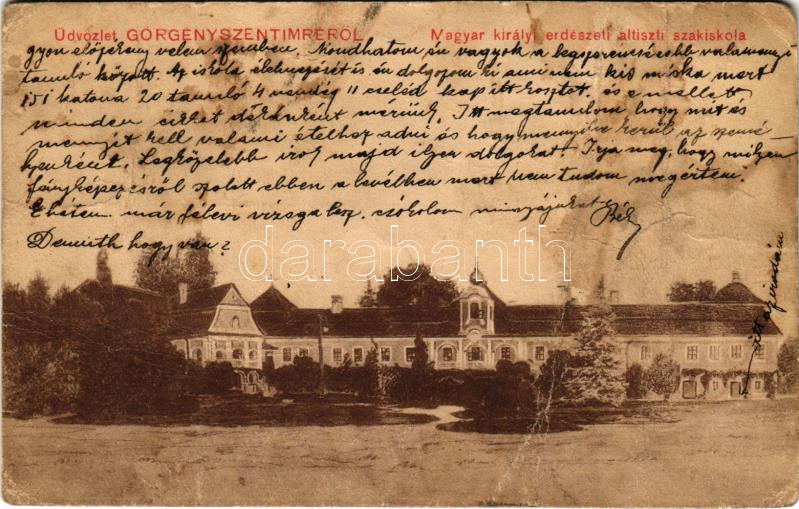 Üdvözlet GÖRGÉNYSZENTIMRÉRŐL Magyar királyi erdészeti altiszti szakiskola
gyon előzékeny velem szemben. Mondhatom én vagyok a legszerencsésebb valamennyi
tanuló között. Az iskola élelmezését is én dolgozom ki ami nem kis munka mert
151 katona 20 tanuló 4 vendég 11 család kap itt kosztot, és e mellett
minden cikket dekánként mérünk. Itt megtanulom hogy mit és
mennyit kell valami ételhez adni és hogy mennyibe kerül az szemé-
lyenként. Legközelebb írok majd ilyen dolgokat. Irja meg, hogy milyen
fényképezésről szolott ebben a levélben mert nem tudom megérteni.
E héten már félévi vizsga lesz. csókolom mindnyájukat Béla
hogy van?
itt az irodám
darabanth